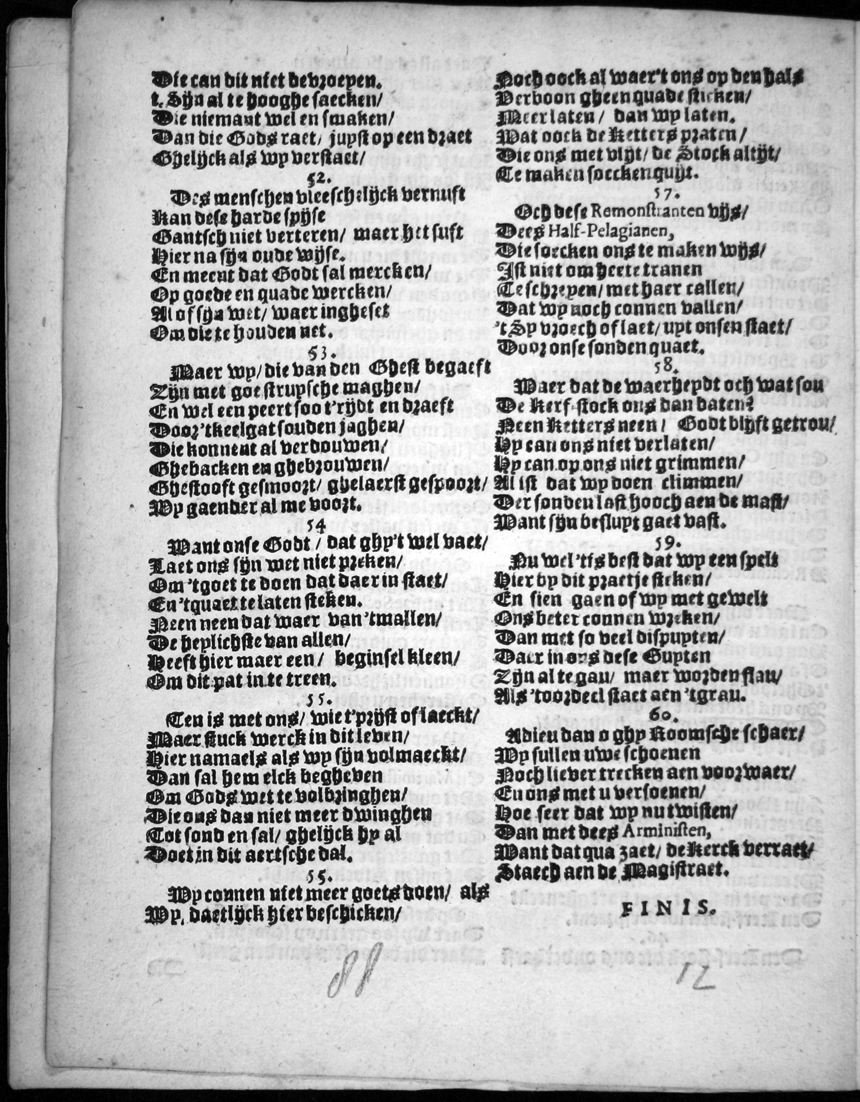 Die can dit niet bevroepen.
t. Sijn al te hooghe saecken/
Die niemant wel en smaken/
Dan die Gods raet/ jupst op een draet
Ghelijck als wy verstaet/
52.
Des menschen vleeschelijck vernuft
Kan dese harde spijse
Gantsch niet verteren/ maer het suft
Hier na sijn oude wijse.
En meent dat Godt sal mercken/
Op goede en quade wercken/
Al of sijn wet/ waer ingheset
Om die te houden net.
53.
Maer wy/ die van den Ghest begaeft
Zijn met goe strupsche maghen/
En wel een peert soo t'rijdt en draeft
Door 'tkeelgat souden jaghen/
Die konnent al verdouwen/
Ghebacken en ghebrouwen/
Ghestooft gesmoort/ ghelaerst gespoort/
Wy gaender al me voort.
54
Want onse Godt/ dat ghy't wel vaet/
Laet ons sijn wet niet preken/
Om 'tgoet te doen dat daer in staet/
En 'tquaet te laten steken.
Neen neen dat waer van 'tmallen/
De heylichste van allen/
Heeft hier maer een/ beginsel kleen/
Om dit pat in te treen.
55.
Ten is met ons/ wie t'prijst of laeckt/
Maer stuck werck in dit leven/
Hier namaels als wy sijn volmaeckt/
Dan sal hem elck begheven
Om Gods wet te volbringhen/
Die ons dan niet meer dwinghen
Tot sond en sal/ ghelijck hy al
Doet in dit aertsche dal.
55.
Wy connen niet meer goets doen/ als
Wy, daetlijck hier beschicken/
Noch oock al waer't ons op den hals
Verboon gheen quade sticken/
Meer laten/ dan wy laten.
Wat oock de Ketters praten/
Die ons met vlijt/ de Stock altijt/
Te maken soecken quijt.
57.
Och dese Remonstranten vijs/
Dees Half-Pelagianen,
Die soecken ons te maken wijs/
Ist niet om heete tranen
Te schreyen/ met haer callen/
Dat wy noch connen vallen/
't Sy vroech of laet/ upt onsen staet/
Door onse sonden quaet.
58.
Maer dat de waerheydt och wat sou
De Kerf-stock ons dan baten?
Neen Ketters neen/ Godt blijft getrou/
Hy can ons niet verlaten/
Hy can op ons niet grimmen/
Al ist dat wy doen climmen/
Der sonden last hooch aen de mast/
Want sijn beslupt gaet vast.
59.
Nu wel 'tis best dat wy een spelt
Hier by dit praetje steken/
En sien gaen of wy met gewelt
Ons beter connen wreken/
Dan met so veel dispupten/
Daer in ons dese Gupten
Zijn al te gau/ maer worden flau/
Als 'toordeel staet aen 'tgrau.
60.
Adieu dan o ghy Roomsche schaer/
Wy sullen uwe schoenen
Noch liever trecken aen voorwaer/
En ons met u versoenen/
Hoe seer dat wy nu twisten/
Dan met dees Arministen,
Want dat qua zaet/ de Kerck verraet/
Staech aen de Magistraet.
FINIS.
88
12